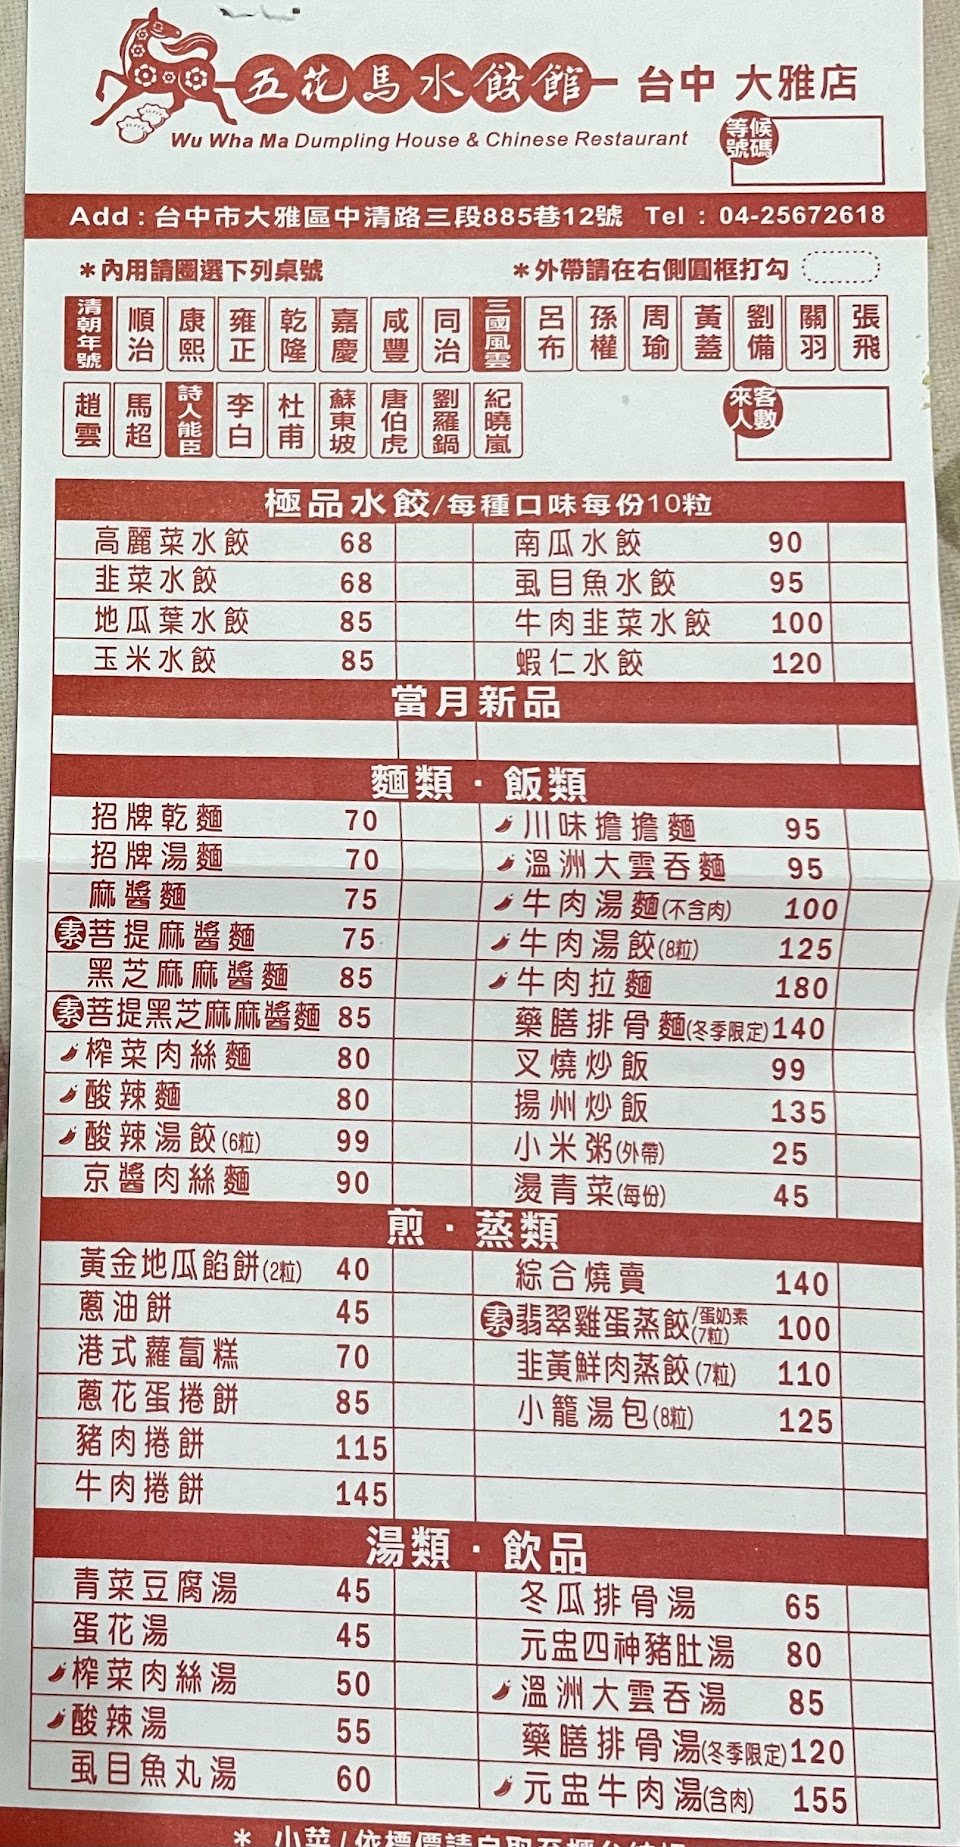 五花馬水餃館 台中 大雅店
Wu Wha Ma Dumpling House & Chinese Restaurant
等候號碼
Add：台中市大雅區中清路三段885巷12號 Tel：04-25672618
＊內用請圈選下列桌號 ＊外帶請在右側圓框打勾
清朝年號 順治 康熙 雍正 乾隆 嘉慶 咸豐 同治 三國風雲 呂布 孫權 周瑜 黃蓋 劉備 關羽 張飛
趙雲 馬超 詩人能臣 李白 杜甫 蘇東坡 唐伯虎 劉羅鍋 紀曉嵐
來客人數
極品水餃/每種口味每份10粒
高麗菜水餃 68 南瓜水餃 90
韭菜水餃 68 虱目魚水餃 95
地瓜葉水餃 85 牛肉韭菜水餃 100
玉米水餃 85 蝦仁水餃 120
當月新品
麵類・飯類
招牌乾麵 70 川味擔擔麵 95
招牌湯麵 70 溫洲大雲吞麵 95
麻醬麵 75 牛肉湯麵(不含肉) 100
素菩提麻醬麵 75 牛肉湯餃(8粒) 125
黑芝麻麻醬麵 85 牛肉拉麵 180
素菩提黑芝麻麻醬麵 85 藥膳排骨麵(冬季限定) 140
榨菜肉絲麵 80 叉燒炒飯 99
酸辣麵 80 揚州炒飯 135
酸辣湯餃(6粒) 99 小米粥(外帶) 25
京醬肉絲麵 90 燙青菜(每份) 45
煎・蒸類
黃金地瓜餡餅(2粒) 40 綜合燒賣 140
蔥油餅 45 素翡翠雞蛋蒸餃/蛋奶素(7粒) 100
港式蘿蔔糕 70 韭黃鮮肉蒸餃(7粒) 110
蔥花蛋捲餅 85 小籠湯包(8粒) 125
豬肉捲餅 115
牛肉捲餅 145
湯類・飲品
青菜豆腐湯 45 冬瓜排骨湯 65
蛋花湯 45 元盅四神豬肚湯 80
榨菜肉絲湯 50 溫洲大雲吞湯 85
酸辣湯 55 藥膳排骨湯(冬季限定) 120
虱目魚丸湯 60 元盅牛肉湯(含肉) 155
＊ 小菜/依標價請自取至櫃台結帳